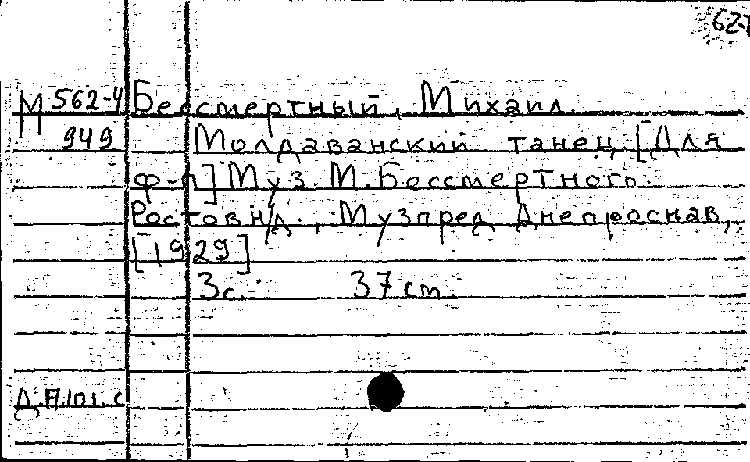 62-
М 562-4 Бессмертный, Михаил.
949 Молдаванский танец [Для
ф-п] Муз. М. Бессмертного.
Ростов н/д., Музпред Днепроснав,
[1929]
3с. 37 cm.